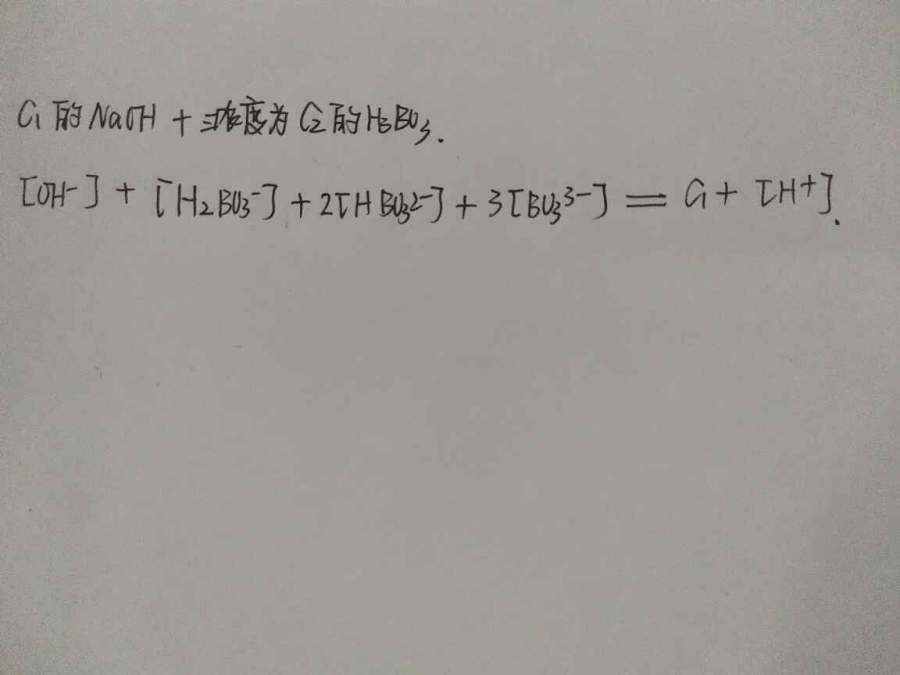 C₁的NaOH + 浓度为C₂的H₃BO₃.
[OH⁻] + [H₂BO₃⁻] + 2[HBO₃²⁻] + 3[BO₃³⁻] = C₁ + [H⁺].